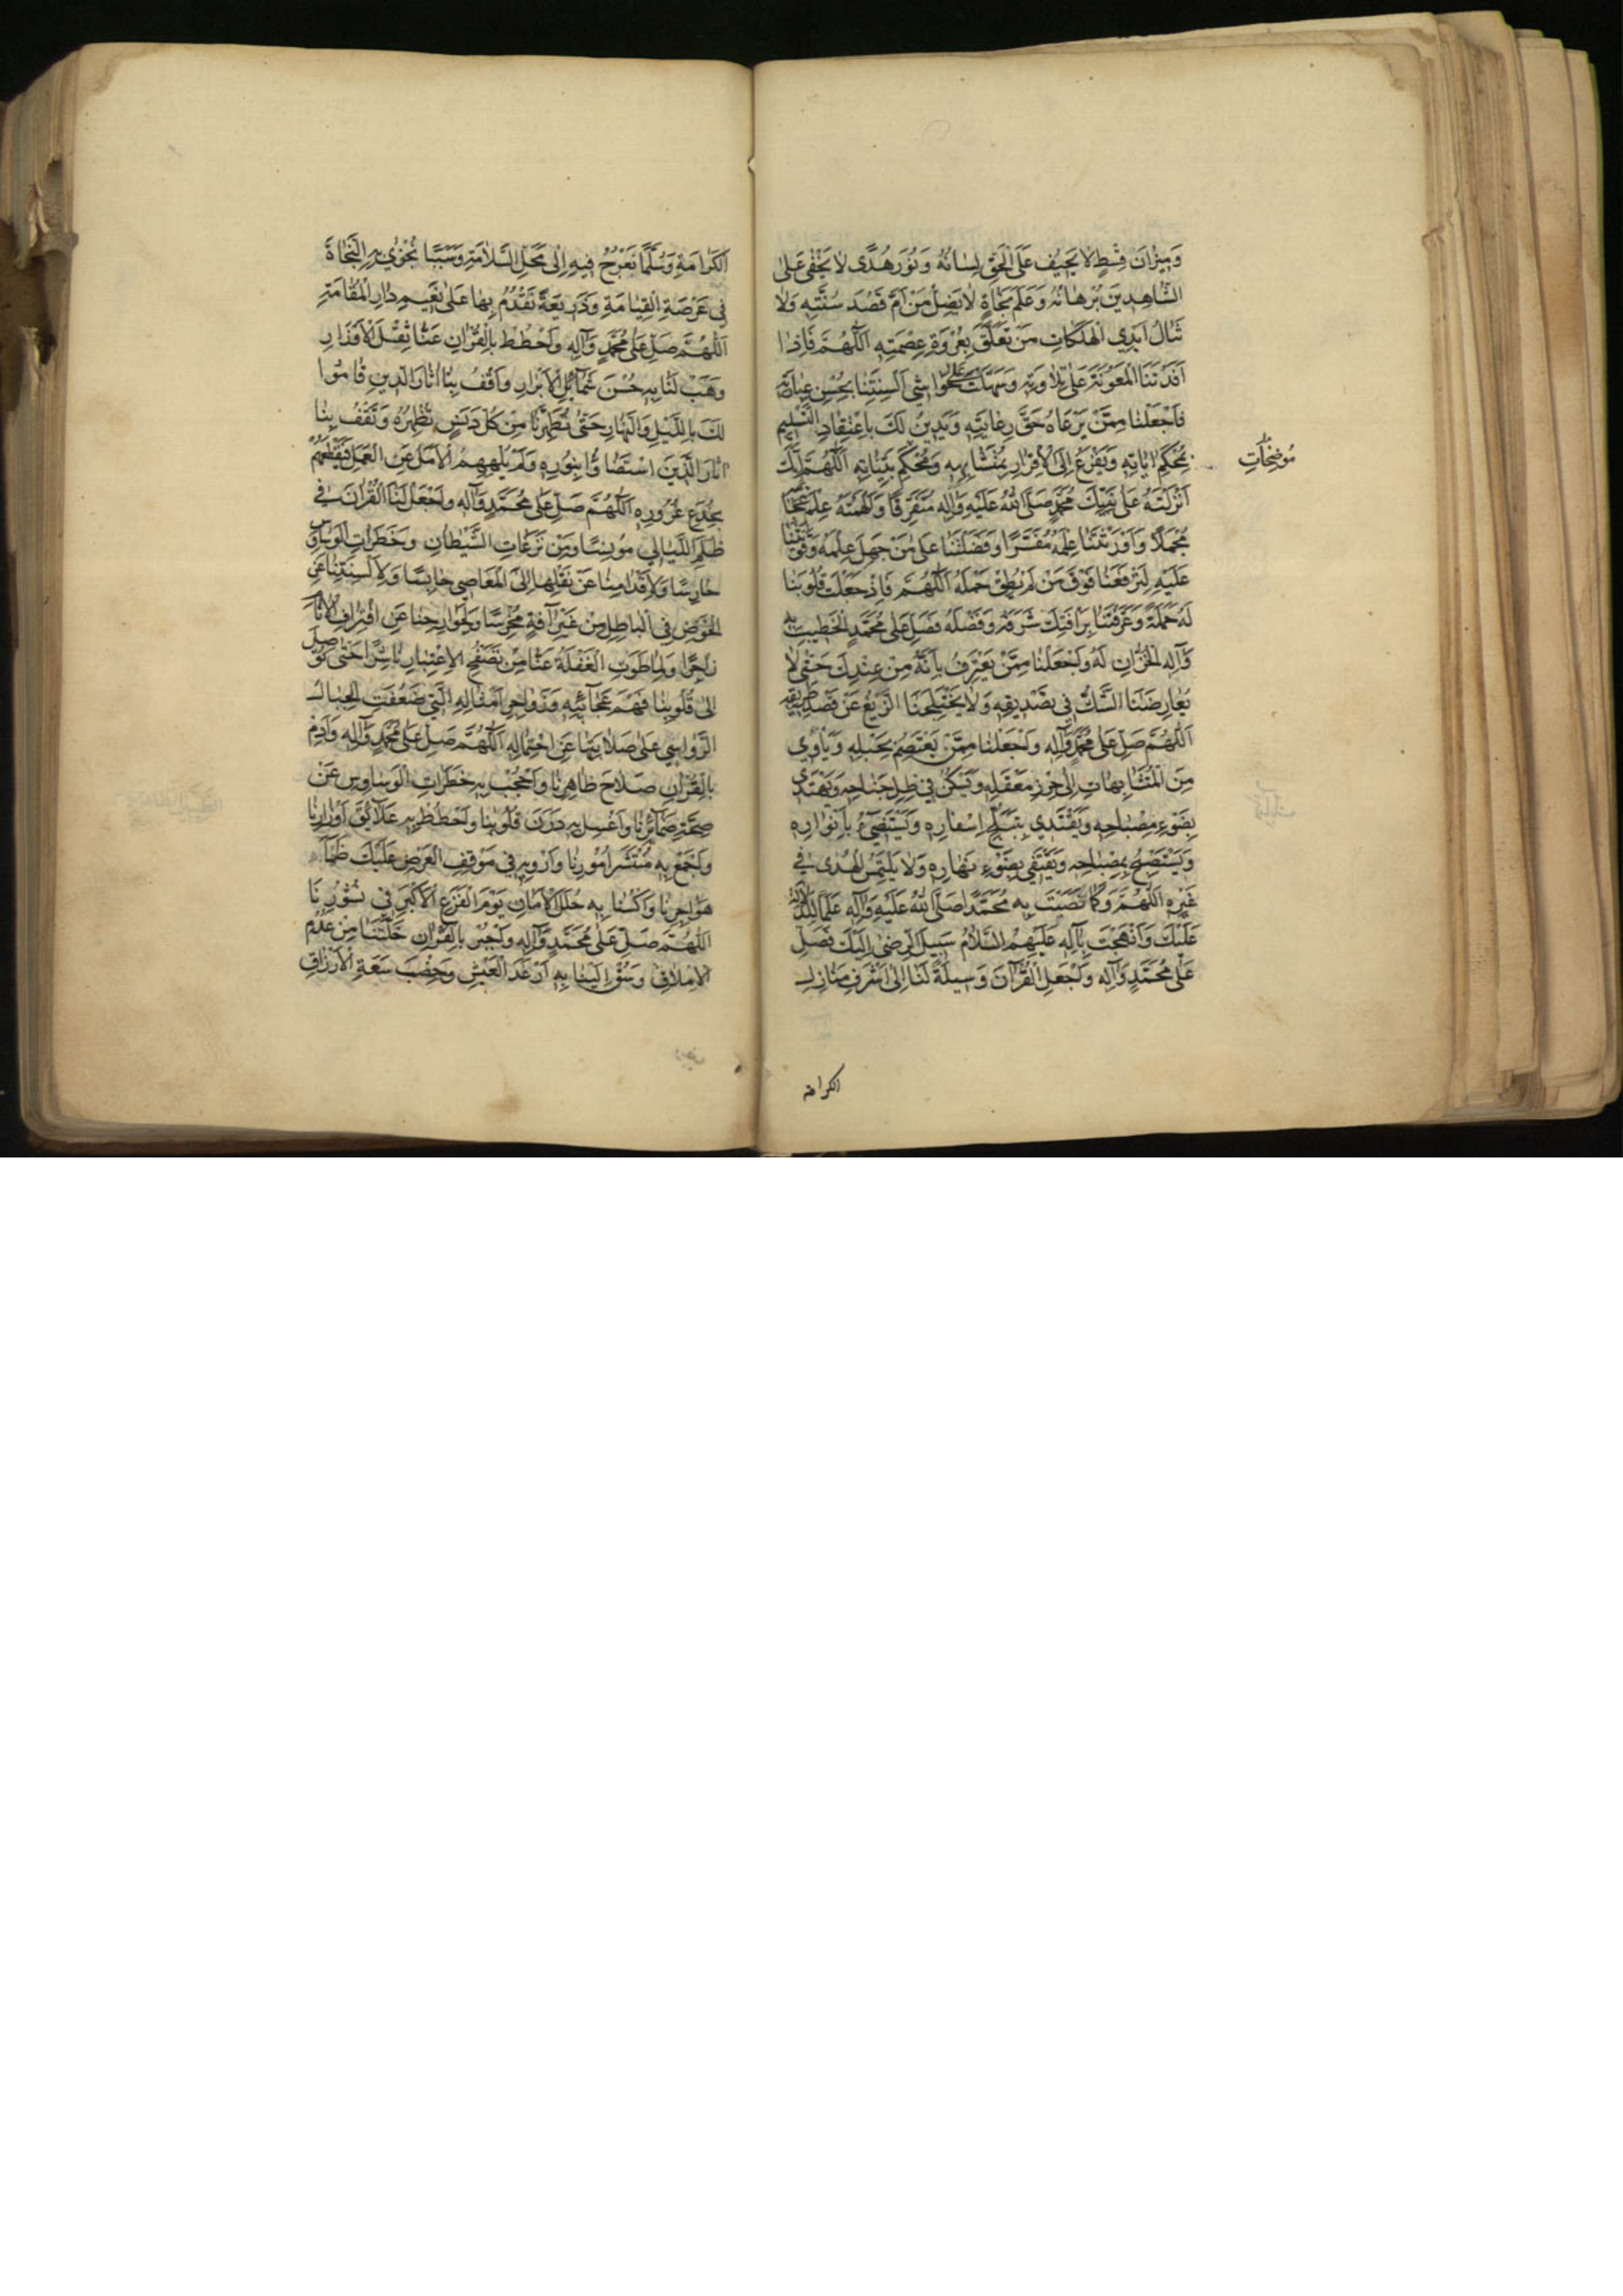 وَمِيزانَ قِسْطٍ لا يَحِيفُ عَلَى الحَقِّ لِسانُهُ وَنُورَ هُدًى لا يَخْفى عَلَى
الشّاهِدِينَ بُرْهانُهُ وَعَلَمَ نَجاةٍ لا يَضِلُّ مَنْ اَمَّ قَصْدَ سُنَّتِهِ وَلا
تَنالُ اَيْدِي الهَلَكاتِ مَنْ تَعَلَّقَ بِعُرْوَةِ عِصْمَتِهِ اَللّهُمَّ فَاِذا
اَفَدْتَنَا المَعُونَةَ عَلى تِلاوَتِهِ وَسَهَّلْتَ حَواشِي اَلْسِنَتِنا بِحُسْنِ عِبارَتِهِ
فَاجْعَلْنا مِمَّنْ يَرْعاهُ حَقَّ رِعايَتِهِ وَيَدِينُ لَكَ بِاعْتِقادِ التَّسْلِيمِ
لِمُحْكَمِ اياتِهِ وَيَفْزَعُ اِلَى الاِقْرارِ بِمُتَشابِهِهِ وَمُحْكَمِ بَيِّناتِهِ اَللّهُمَّ اِنَّكَ
مُوضَحاتِ
اَنْزَلْتَهُ عَلى نَبِيِّكَ مُحَمَّدٍ صَلَّى اللهُ عَلَيْهِ وَالِهِ مُتَفَرِّقًا وَاَلْهَمْتَهُ عِلْمَ
مُجْمَلاً وَاَوْرَثْتَنا عِلْمَهُ مُفَسَّرًا وَفَضَّلْتَنا عَلى مَنْ جَهِلَ عِلْمَهُ وَقَوَّيْتَنا
عَلَيْهِ لِتَرْفَعَنا فَوْقَ مَنْ لَمْ يُطِقْ حَمْلَهُ اَللّهُمَّ فَاِذْ جَعَلْتَ قُلُوبَنا
لَهُ حَمَلَةً وَعَرَّفْتَنا بِرَاْفَتِكَ شَرَفَهُ وَفَضْلَهُ فَصَلِّ عَلى مُحَمَّدٍ الخَطِيبِ بِهِ
وَّالِهِ الخُزّانِ لَهُ وَاجْعَلْنا مِمَّنْ يَعْتَرِفُ بِاَنَّهُ مِنْ عِنْدِكَ حَتّى لا
يُعارِضَنَا الشَّكُّ فِي تَصْدِيقِهِ وَلا يَخْتَلِجَنَا الزَّيْغُ عَنْ قَصْدِ طَرِيقِهِ
اَللّهُمَّ صَلِّ عَلى مُحَمَّدٍ وَّالِهِ وَاجْعَلْنا مِمَّنْ يَعْتَصِمُ بِحَبْلِهِ وَيَاْوِي
مِنَ المُتَشابِهاتِ اِلى حِرْزِ مَعْقِلِهِ وَيَسْكُنُ فِي ظِلِّ جَناحِهِ وَيَهْتَدِي
بِضَوْءِ مِصْباحِهِ وَيَقْتَدِي بِتَبَلُّجِ اِسْفارِهِ وَيَسْتَضِيءُ بِاَنْوارِهِ
وَيَسْتَصْبِحُ بِمِصْباحِهِ وَيَقْتَفِي بِضَوْءِ نَهارِهِ وَلا يَلْتَمِسُ الهُدى فِي
غَيْرِهِ اَللّهُمَّ وَكَما نَصَبْتَ بِهِ مُحَمَّدًا صَلَّى اللهُ عَلَيْهِ وَالِهِ عَلَمًا لِلدَّلالَةِ
عَلَيْكَ وَاَنْهَجْتَ بِالِهِ عَلَيْهِمُ السَّلامُ سَبِيلَ الرِّضى اِلَيْكَ فَصَلِّ
عَلى مُحَمَّدٍ وَالِهِ وَاجْعَلِ القُرْانَ وَسِيلَةً لَنا اِلى اَشْرَفِ مَنازِلِ
الكرامه
الكَرامَةِ وَسُلَّمًا نَعْرُجُ فِيهِ اِلى مَحَلِّ السَّلامَةِ وَسَبَبًا نُجْزى بِهِ النَّجاةَ
فِي عَرْصَةِ القِيامَةِ وَذَرِيعَةً نَقْدُمُ بِها عَلى نَعِيمِ دارِ المُقامَةِ
اَللّهُمَّ صَلِّ عَلى مُحَمَّدٍ وَّالِهِ وَاحْطُطْ بِالقُرْانِ عَنّا ثِقْلَ الاَوْزارِ
وَهَبْ لَنا بِهِ حُسْنَ شَمائِلِ الاَبْرارِ وَاقْفُ بِنا اثارَ الَّذِينَ قامُوا
لَكَ بِاللَّيْلِ وَالنَّهارِ حَتّى تُطَهِّرَنا مِنْ كُلِّ دَنَسٍ بِتَطْهِيرِهِ وَتَقْفُ بِنا
اثارَ الَّذِينَ اسْتَضاؤُا بِنُورِهِ وَلَمْ يُلْهِهِمُ الاَمَلُ عَنِ العَمَلِ فَيَقْطَعَهُمْ
بِخُدَعِ غُرُورِهِ اَللّهُمَّ صَلِّ عَلى مُحَمَّدٍ وَّالِهِ وَاجْعَلْ لَنَا القُرْانَ فِي
ظُلَمِ اللَّيالِي مُونِسًا وَمِنْ نَزَغاتِ الشَّيْطانِ وَخَطَراتِ الوَساوِسِ
حارِسًا وَلاَقْدامِنا عَنْ نَقْلِها اِلَى المَعاصِي حابِسًا وَلاَلْسِنَتِنا عَنِ
الخَوْضِ فِي الباطِلِ مِنْ غَيْرِ افَةٍ مُخْرِسًا وَلِجَوارِحِنا عَنِ اقْتِرافِ الاثامِ
زاجِرًا وَلِما طَوَتِ الغَفْلَةُ عَنّا مِنْ تَصَفُّحِ الاِعْتِبارِ ناشِرًا حَتّى تُوصِلَ
اِلى قُلُوبِنا فَهْمَ عَجائِبِهِ وَزَواجِرَ اَمْثالِهِ الَّتِي ضَعُفَتِ الجِبالُ
الرَّواسِي عَلى صَلابَتِها عَنِ احْتِمالِهِ اَللّهُمَّ صَلِّ عَلى مُحَمَّدٍ وَّالِهِ وَاَدِمْ
بِالقُرْانِ صَلاحَ ظاهِرِنا وَاحْجُبْ بِهِ خَطَراتِ الوَساوِسِ عَنْ
صِحَّةِ ضَمائِرِنا وَاغْسِلْ بِهِ دَرَنَ قُلُوبِنا وَاحْطُطْ بِهِ عَلائِقَ اَوْزارِنا
وَاجْمَعْ بِهِ مُنْتَشَرَ اُمُورِنا وَاَرْوِ بِهِ فِي مَوْقِفِ العَرْضِ عَلَيْكَ ظَمَاَ
هَواجِرِنا وَاكْسُنا بِهِ حُلَلَ الاَمانِ يَوْمَ الفَزَعِ الاَكْبَرِ فِي نُشُورِنا
اَللّهُمَّ صَلِّ عَلى مُحَمَّدٍ وَّالِهِ وَاجْبُرْ بِالقُرْانِ خَلَّتَنا مِنْ عَدَمِ
الاِمْلاقِ وَسُقْ اِلَيْنا بِهِ اَرْغَدَ العَيْشِ وَخِصْبَ سَعَةِ الاَرْزاقِ